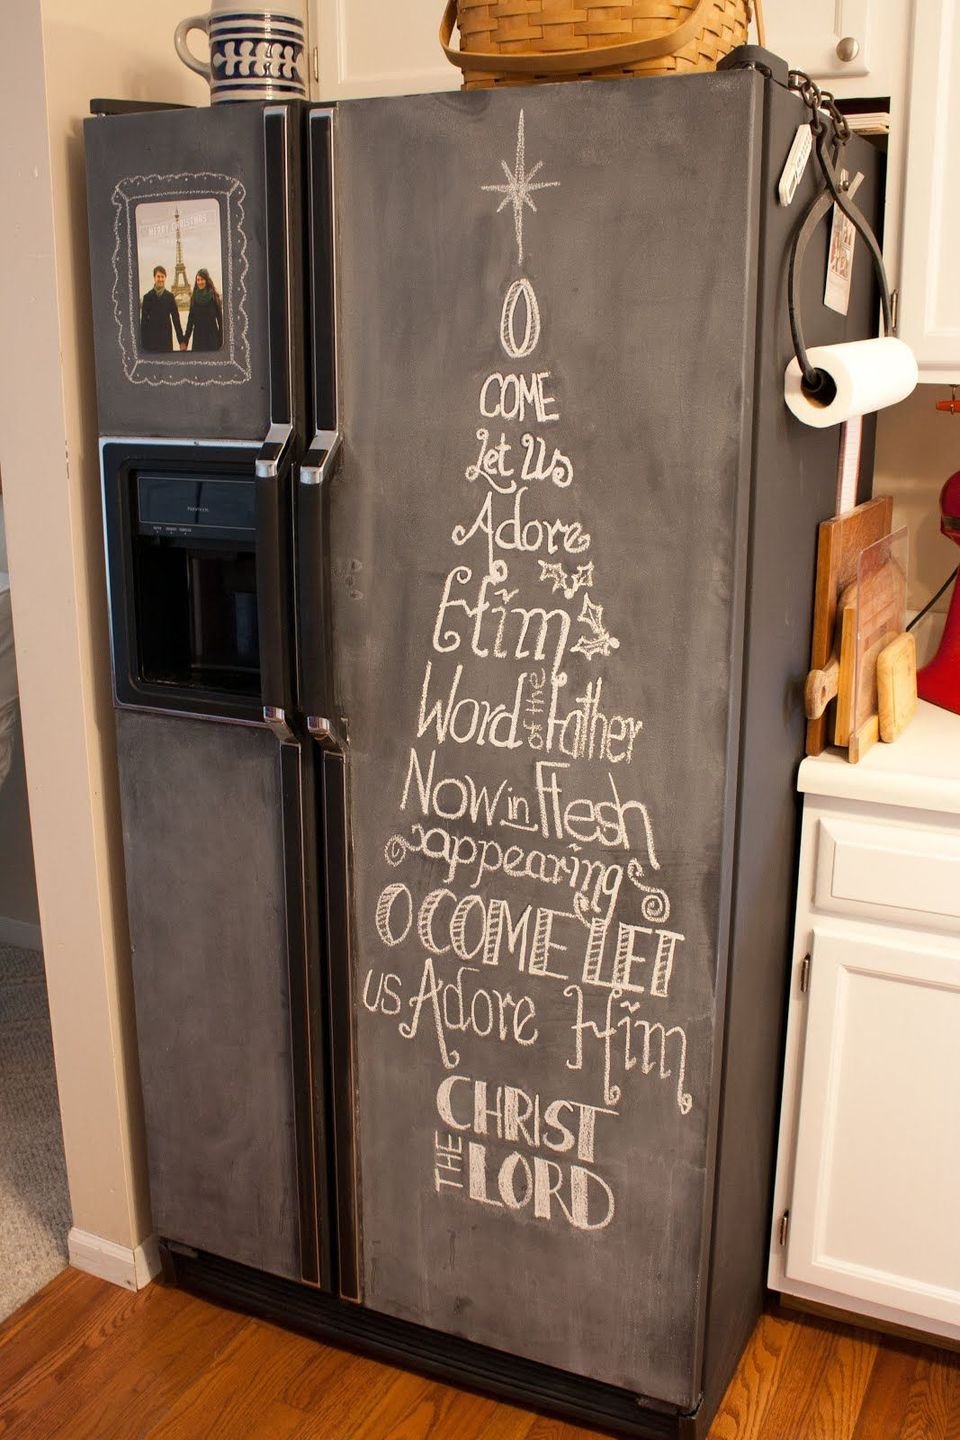 MERRY CHRISTMAS
O
COME
Let Us
Adore
Him
Word of the Father
Now in Flesh
appearing
O COME LET
us Adore Him
CHRIST
THE LORD